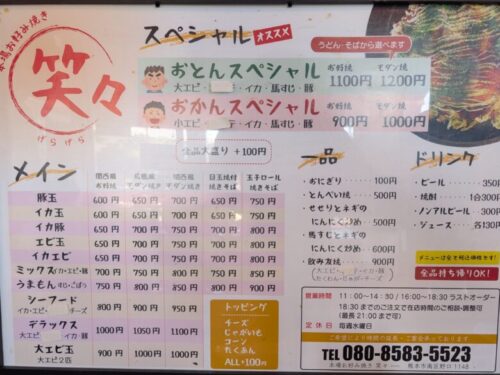 本場お好み焼き
笑々
げらげら
スペシャル オススメ
うどん・そばから選べます
お好焼 モダン焼
おとんスペシャル 1100円 1200円
大エビ・ テ・イカ・馬すじ・豚
お好焼 モダン焼
おかんスペシャル 900円 1000円
小エビ・ テ・イカ・馬すじ・豚
全品大盛り +100円
メイン
関西風お好焼き 広島風お好焼き 関西風モダン焼き 目玉焼付焼きそば 玉子ロール焼きそば
豚玉 600円 650円 700円 650円 750円
イカ玉 600円 650円 700円 650円 750円
イカ豚 650円 700円 750円 700円 800円
エビ玉 650円 700円 750円 700円 800円
イカエビ 650円 700円 750円 700円 800円
ミックス イカ・エビ・豚 700円 750円 800円 750円 850円
うまもん すじ・ごぼう 750円 800円 850円 800円 900円
シーフード 800円 900円 950円
イカ・エビ チーズ
デラックス 1000円 1050円 1100円
大エビ玉 900円 950円 1000円
大エビ2匹
トッピング
チーズ
じゃがいも
コーン
たくあん
ALL+100円
一品
・おにぎり 100円
・とんぺい焼 500円
・せせりとネギの
にんにく炒め 500円
・馬すじとネギの
にんにく炒め 600円
・飲み友焼 900円
ドリンク
・ビール 350円
・焼酎 1合300円
・ノンアルビール 300円
・ジュース 各130円
メニューは全て税込価格です!
全品持ち帰りOK!
営業時間 11:00~14:30/16:00~18:30 ラストオーダー
18:30までのご注文で在店時間のご相談・調整可
(最長 21:00まで可)
定休日 毎週水曜日
TEL 080-8583-5523
本場お好み焼き 笑々
熊本市南区野口1148